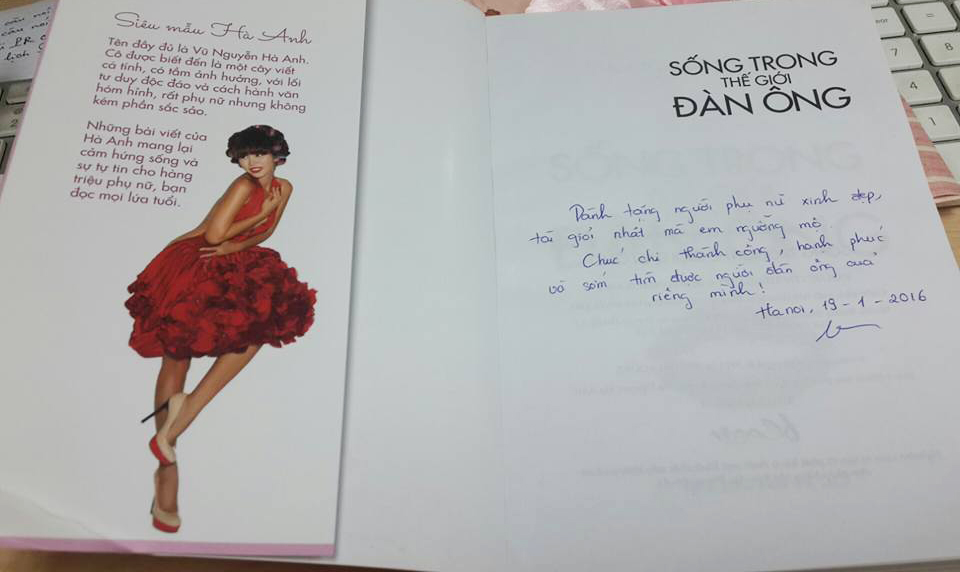 Siêu mẫu Hà Anh
Tên đầy đủ là Vũ Nguyễn Hà Anh.
Cô được biết đến là một cây viết
cá tính, có tầm ảnh hưởng, với lối
tư duy độc đáo và cách hành văn
hóm hỉnh, rất phụ nữ nhưng không
kém phần sắc sảo.
Những bài viết của
Hà Anh mang lại
cảm hứng sống và
sự tự tin cho hàng
triệu phụ nữ, bạn
đọc mọi lứa tuổi.
SỐNG TRONG
THẾ GIỚI
ĐÀN ÔNG
Dành tặng người phụ nữ xinh đẹp,
tài giỏi nhất mà em ngưỡng mộ
Chúc chị thành công, hạnh phúc
và sớm tìm được người đàn ông của
riêng mình!
Hanoi, 19-1-2016